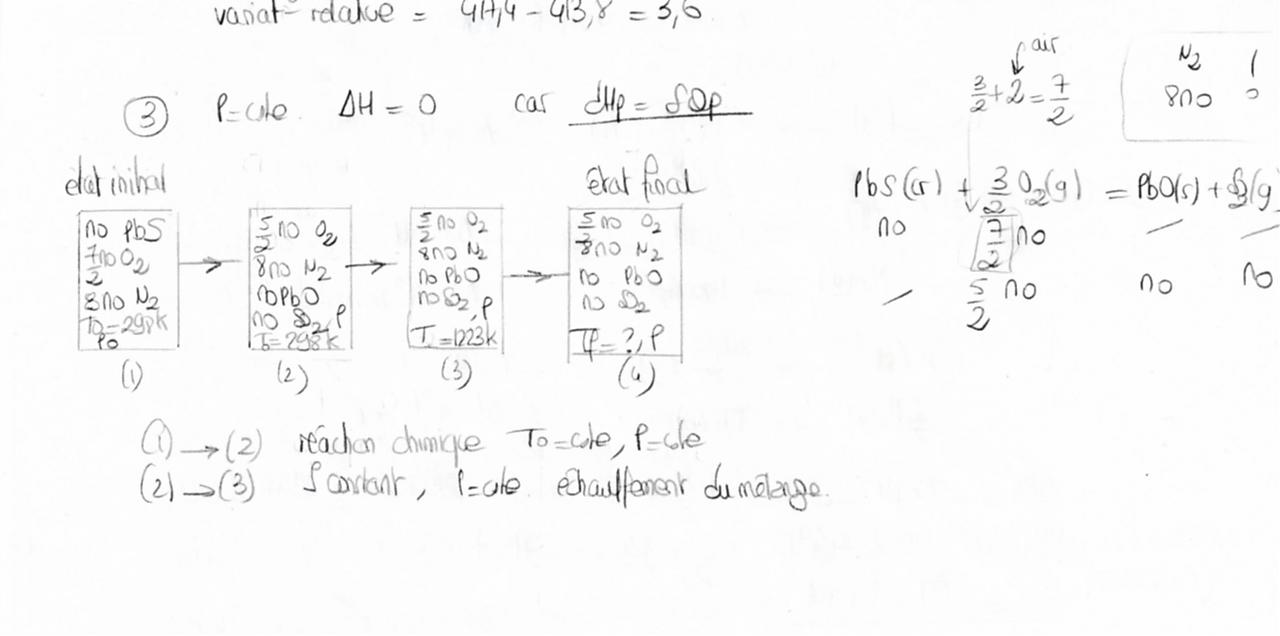 variat° relative = 417,4 - 413,8 = 3,6
③ P=cte. ΔH = 0 car dHp = δQp
3/2 + 2 = 7/2
air
N2
8n0
état initial
n0 PbS
7/2 n0 O2
8n0 N2
T0=298K
P0
(1)
5/2 n0 O2
8n0 N2
n0 PbO
n0 SO2, P
T0=298K
(2)
5/2 n0 O2
8n0 N2
n0 PbO
n0 SO2, P
T=1223K
(3)
État final
5/2 n0 O2
8n0 N2
n0 PbO
n0 SO2
Tf=?, P
(4)
PbS(s) + 3/2 O2(g) = PbO(s) + SO2(g)
n0 7/2 n0 — —
— 5/2 n0 n0 n0
(1) → (2) réaction chimique T0=cte, P=cte
(2) → (3) ξ constant, P=cte échauffement du mélange.